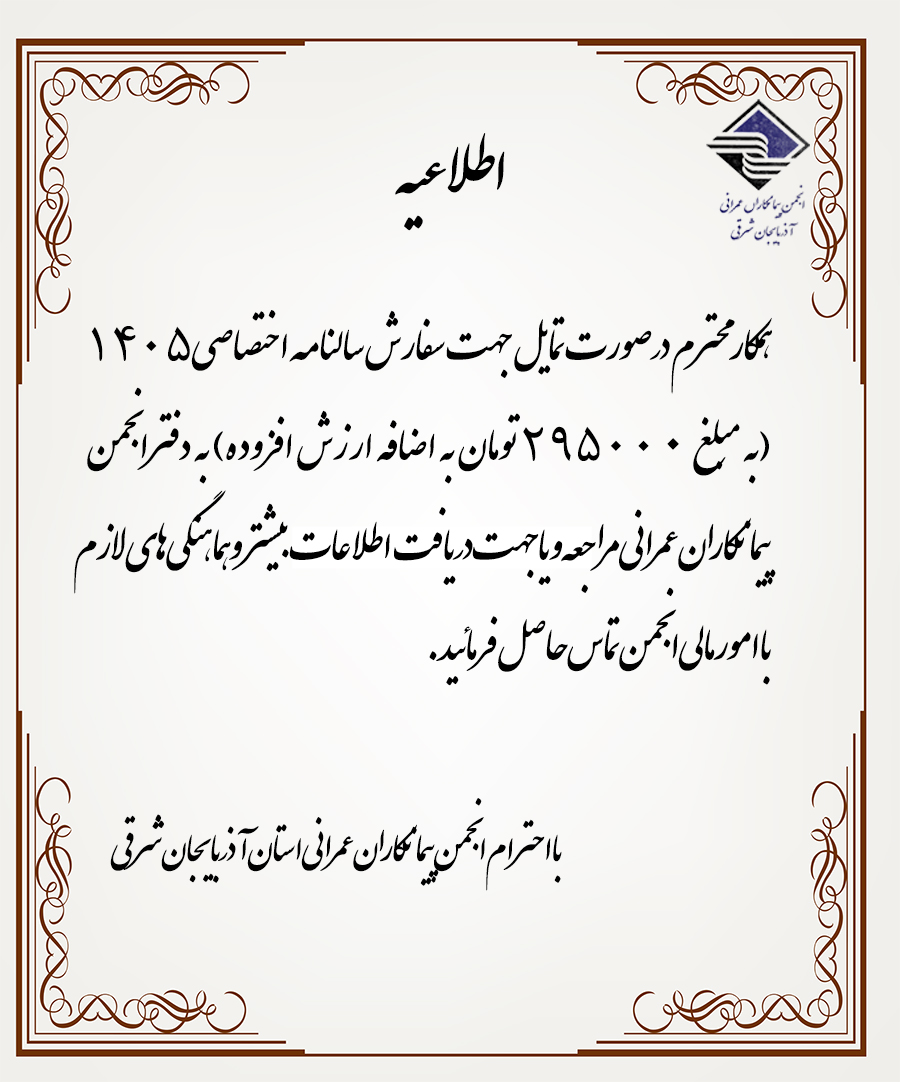 اطلاعیه
انجمن پیمانکاران عمرانی
آذربایجان شرقی
همکار محترم در صورت تمایل جهت سفارش سالنامه اختصاصی ۱۴۰۵
(به مبلغ ۲۹۵۰۰۰ تومان به اضافه ارزش افزوده) به دفتر انجمن
پیمانکاران عمرانی مراجعه و یا جهت دریافت اطلاعات بیشتر و هماهنگی های لازم
با امور مالی انجمن تماس حاصل فرمائید.
با احترام انجمن پیمانکاران عمرانی استان آذربایجان شرقی